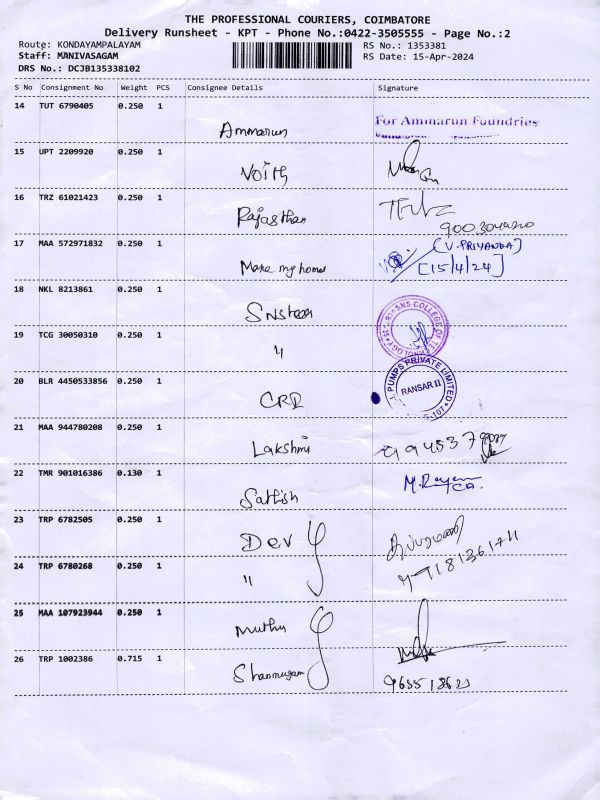 THE PROFESSIONAL COURIERS, COIMBATORE
Delivery Runsheet - KPT - Phone No.:0422-3505555 - Page No.:2
Route: KONDAYAMPALAYAM RS No.: 1353381
Staff: MANIVASAGAM RS Date: 15-Apr-2024
DRS No.: DCJB135338102
S No Consignment No Weight PCS Consignee Details Signature
14 TUT 6790405 0.250 1
Ammarun For Ammarun Foundries
15 UPT 2209920 0.250 1
Voith
16 TRZ 61021423 0.250 1
Rajasthan
17 MAA 572971832 0.250 1 (V.PRIYANGA)
Make my home [15/4/24]
18 NKL 8213861 0.250 1
SNS COLLEGE OF TECHNOLOGY
19 TCG 30050310 0.250 1
〃
20 BLR 4450533856 0.250 1 PUMPS PRIVATE LIMITED
CRI RANSAR II
21 MAA 944780208 0.250 1
Lakshmi
22 TMR 901016386 0.130 1
Sathish
23 TRP 6782505 0.250 1
Dev
24 TRP 6780268 0.250 1
〃
25 MAA 107923944 0.250 1
Muthu
26 TRP 1002386 0.715 1
Shanmugam